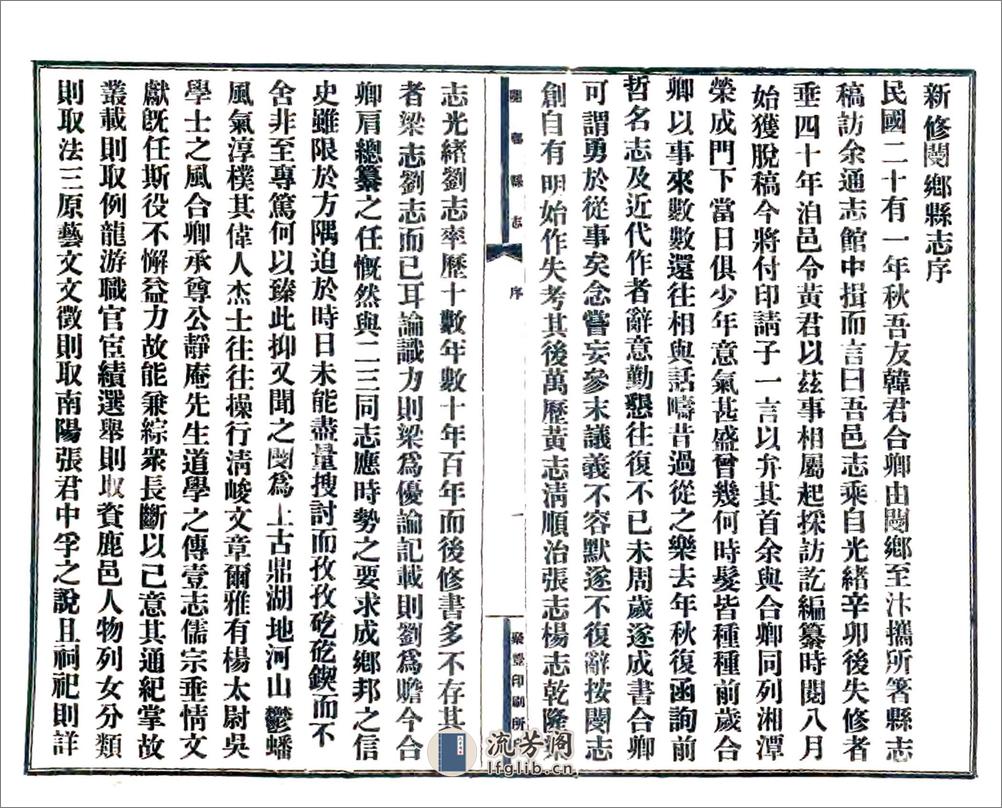 新修閿鄉縣志序
民國二十有一年秋吾友韓君合卿由閿鄉至汴攜所箸縣志
稿訪余通志館中揖而言曰吾邑志乘自光緒辛卯後失修者
垂四十年洎邑令黃君以茲事相屬起採訪訖編纂時閱八月
始獲脫稿今將付印請子一言以弁其首余與合卿同列湘潭
榮成門下當日俱少年意氣甚盛曾幾何時髮皆種種前歲合
卿以事來數數還往相與話疇昔過從之樂去年秋復函詢前
哲名志及近代作者辭意勤懇往復不已未周歲遂成書合卿
可謂勇於從事矣念嘗妄參末議義不容默遂不復辭按閿志
創自有明始作失考其後萬歷黃志淸順治張志楊志乾隆梁
閿鄉縣志
序
一
聚豐印刷所
志光緒劉志率歷十數年數十年百年而後修書多不存其
者梁志劉志而已耳論識力則梁爲優論記載則劉爲贍今合
卿肩總纂之任慨然與二三同志應時勢之要求成鄉邦之信
史雖限於方隅迫於時日未能盡量搜討而孜孜矻矻鍥而不
舍非至專篤何以臻此抑又聞之閿爲上古鼎湖地河山鬱蟠
風氣淳樸其偉人杰士往往操行淸峻文章爾雅有楊太尉吳
學士之風合卿承尊公靜庵先生道學之傳壹志儒宗垂情文
獻旣任斯役不懈益力故能兼綜衆長斷以己意其通紀掌故
叢載則取例龍游職官宦績選舉則取資鹿邑人物列女分類
則取法三原藝文文徵則取南陽張君中孚之說且祠祀則詳
流芳阁
lfglib.cn